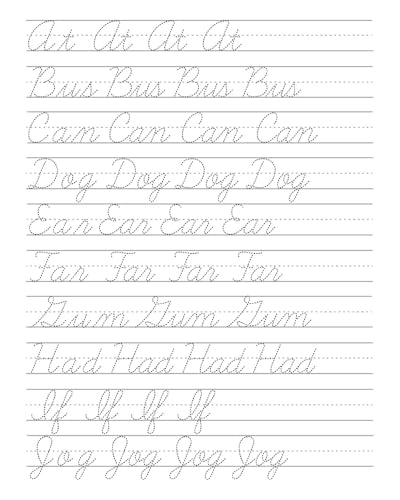 At At At At
Bus Bus Bus Bus
Can Can Can Can
Dog Dog Dog Dog
Ear Ear Ear Ear
Far Far Far Far
Gum Gum Gum
Had Had Had Had
If If If If
Jog Jog Jog Jog